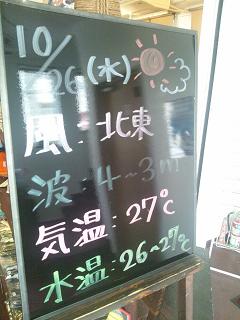 10/26(水)
風:北東
波:4~3m
気温:27℃
水温:26~27℃